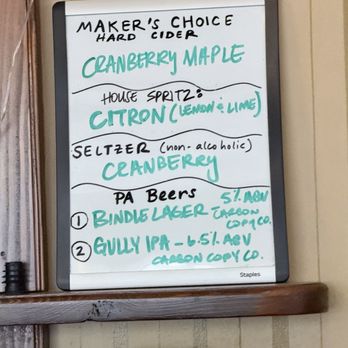 MAKER'S CHOICE
HARD CIDER
CRANBERRY MAPLE
HOUSE SPRITZ:
CITRON (LEMON & LIME)
SELTZER (non-alcoholic)
CRANBERRY
PA Beers
① BINDLE LAGER 5% ABV
CARBON
COPY CO.
② GULLY IPA - 6.5% ABV
CARBON COPY CO.
Staples